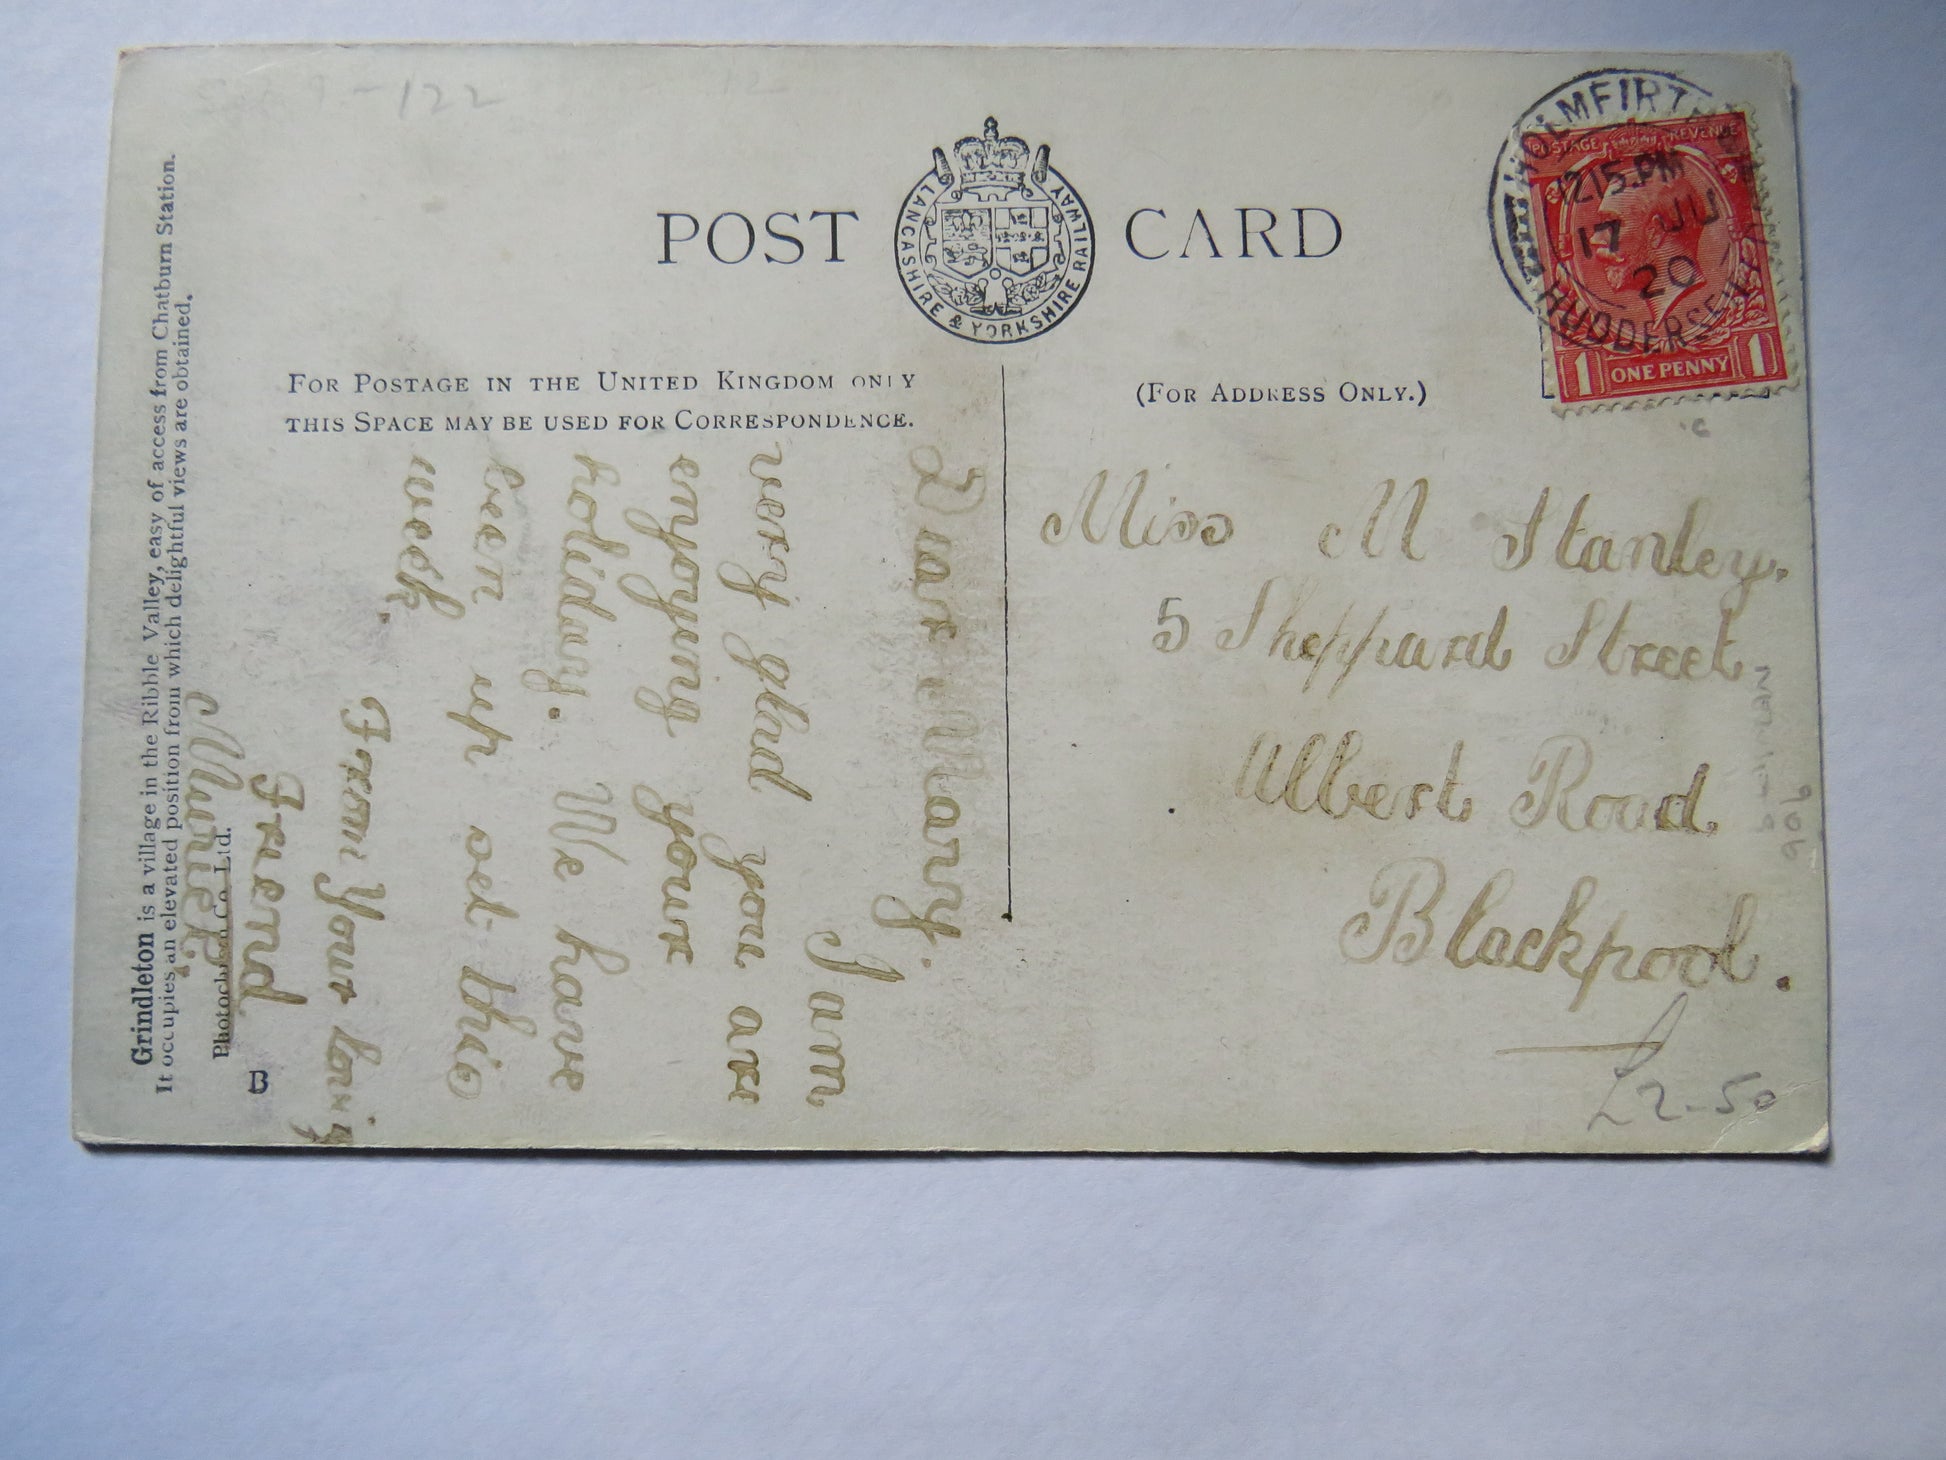 POST CARD
LANCASHIRE & YORKSHIRE RAILWAY
FOR POSTAGE IN THE UNITED KINGDOM ONLY
THIS SPACE MAY BE USED FOR CORRESPONDENCE.
(FOR ADDRESS ONLY.)
HOLMFIRTH
12.15 PM
17 JU
20
HUDDERSFIELD
POSTAGE REVENUE
1 ONE PENNY 1
Dear Mary.
I am
very glad you are
enyoying your
holiday. We have
been up set this
week.
From Your loving
Freend
Muriel.
Miss M Stanley.
5 Sheppard Street
Albert Road
Blackpool.
£2-50
906
-122
Grindleton is a village in the Ribble Valley, easy of access from Chatburn Station.
It occupies an elevated position from which delightful views are obtained.
Photochrom Co. Ltd.
B